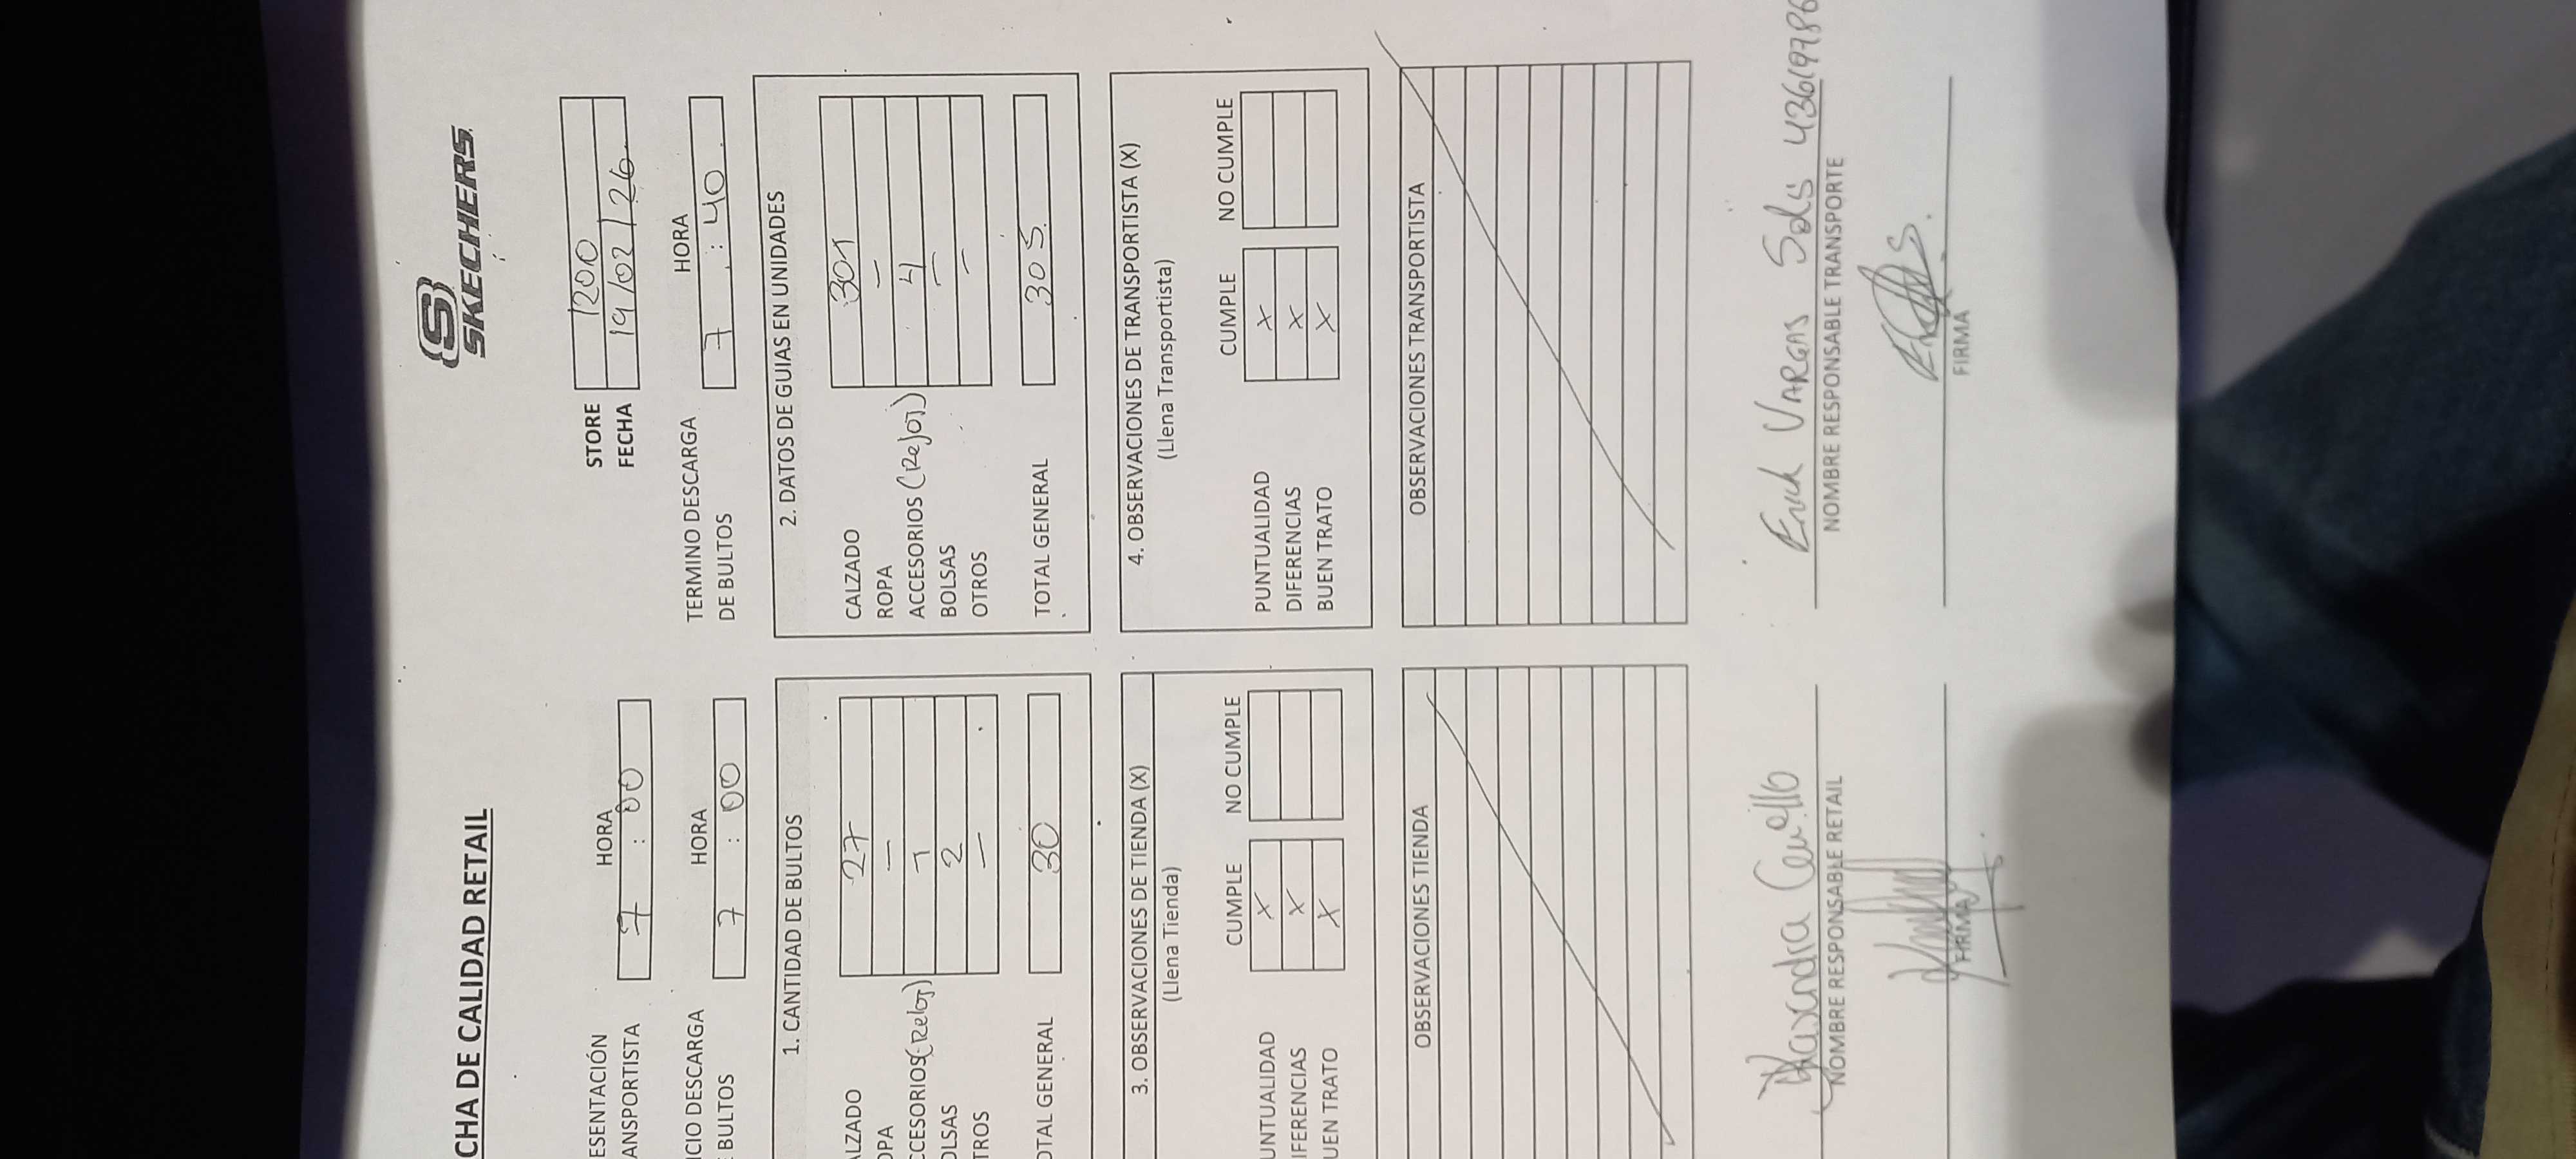 SKECHERS
CHA DE CALIDAD RETAIL
STORE 1200
FECHA 19/02/26
ESENTACIÓN
ANSPORTISTA
HORA
7 : 00
CIO DESCARGA
BULTOS
HORA
7 : 00
TERMINO DESCARGA
DE BULTOS
HORA
7 : 40
1. CANTIDAD DE BULTOS
ALZADO 27
OPA —
CCESORIOS (Reloj) 1
OLSAS 2
TROS —
OTAL GENERAL 30
2. DATOS DE GUIAS EN UNIDADES
CALZADO 301
ROPA —
ACCESORIOS (Reloj) 4
BOLSAS —
OTROS —
TOTAL GENERAL 305
3. OBSERVACIONES DE TIENDA (X)
(Llena Tienda)
CUMPLE NO CUMPLE
UNTUALIDAD X
IFERENCIAS X
UEN TRATO X
4. OBSERVACIONES DE TRANSPORTISTA (X)
(Llena Transportista)
CUMPLE NO CUMPLE
PUNTUALIDAD X
DIFERENCIAS X
BUEN TRATO X
OBSERVACIONES TIENDA
OBSERVACIONES TRANSPORTISTA
NOMBRE RESPONSABLE RETAIL
FIRMA
Erick VARGAS Solis
NOMBRE RESPONSABLE TRANSPORTE
FIRMA